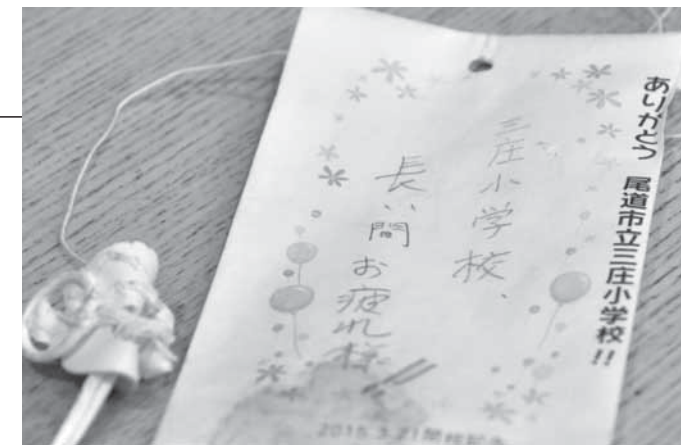 ありがとう 尾道市立三庄小学校!!
三庄小学校、
長い間
お疲れ様!!
2015.3.21閉校記念